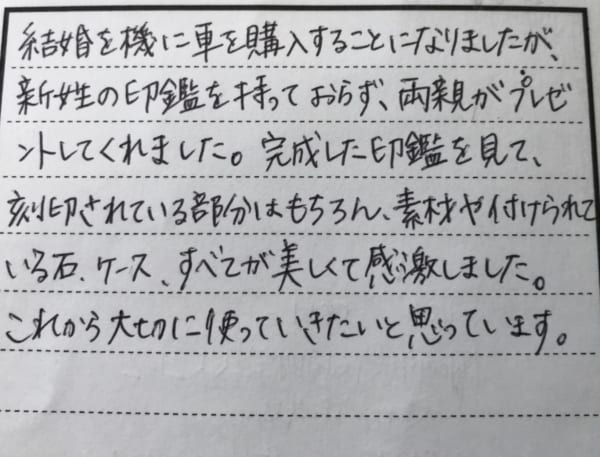 結婚を機に車を購入することになりましたが、
新姓の印鑑を持っておらず、両親がプレゼ
ントしてくれました。完成した印鑑を見て、
刻印されている部分はもちろん、素材や付けられて
いる石、ケース、すべてが美しくて感激しました。
これから大切に使っていきたいと思っています。